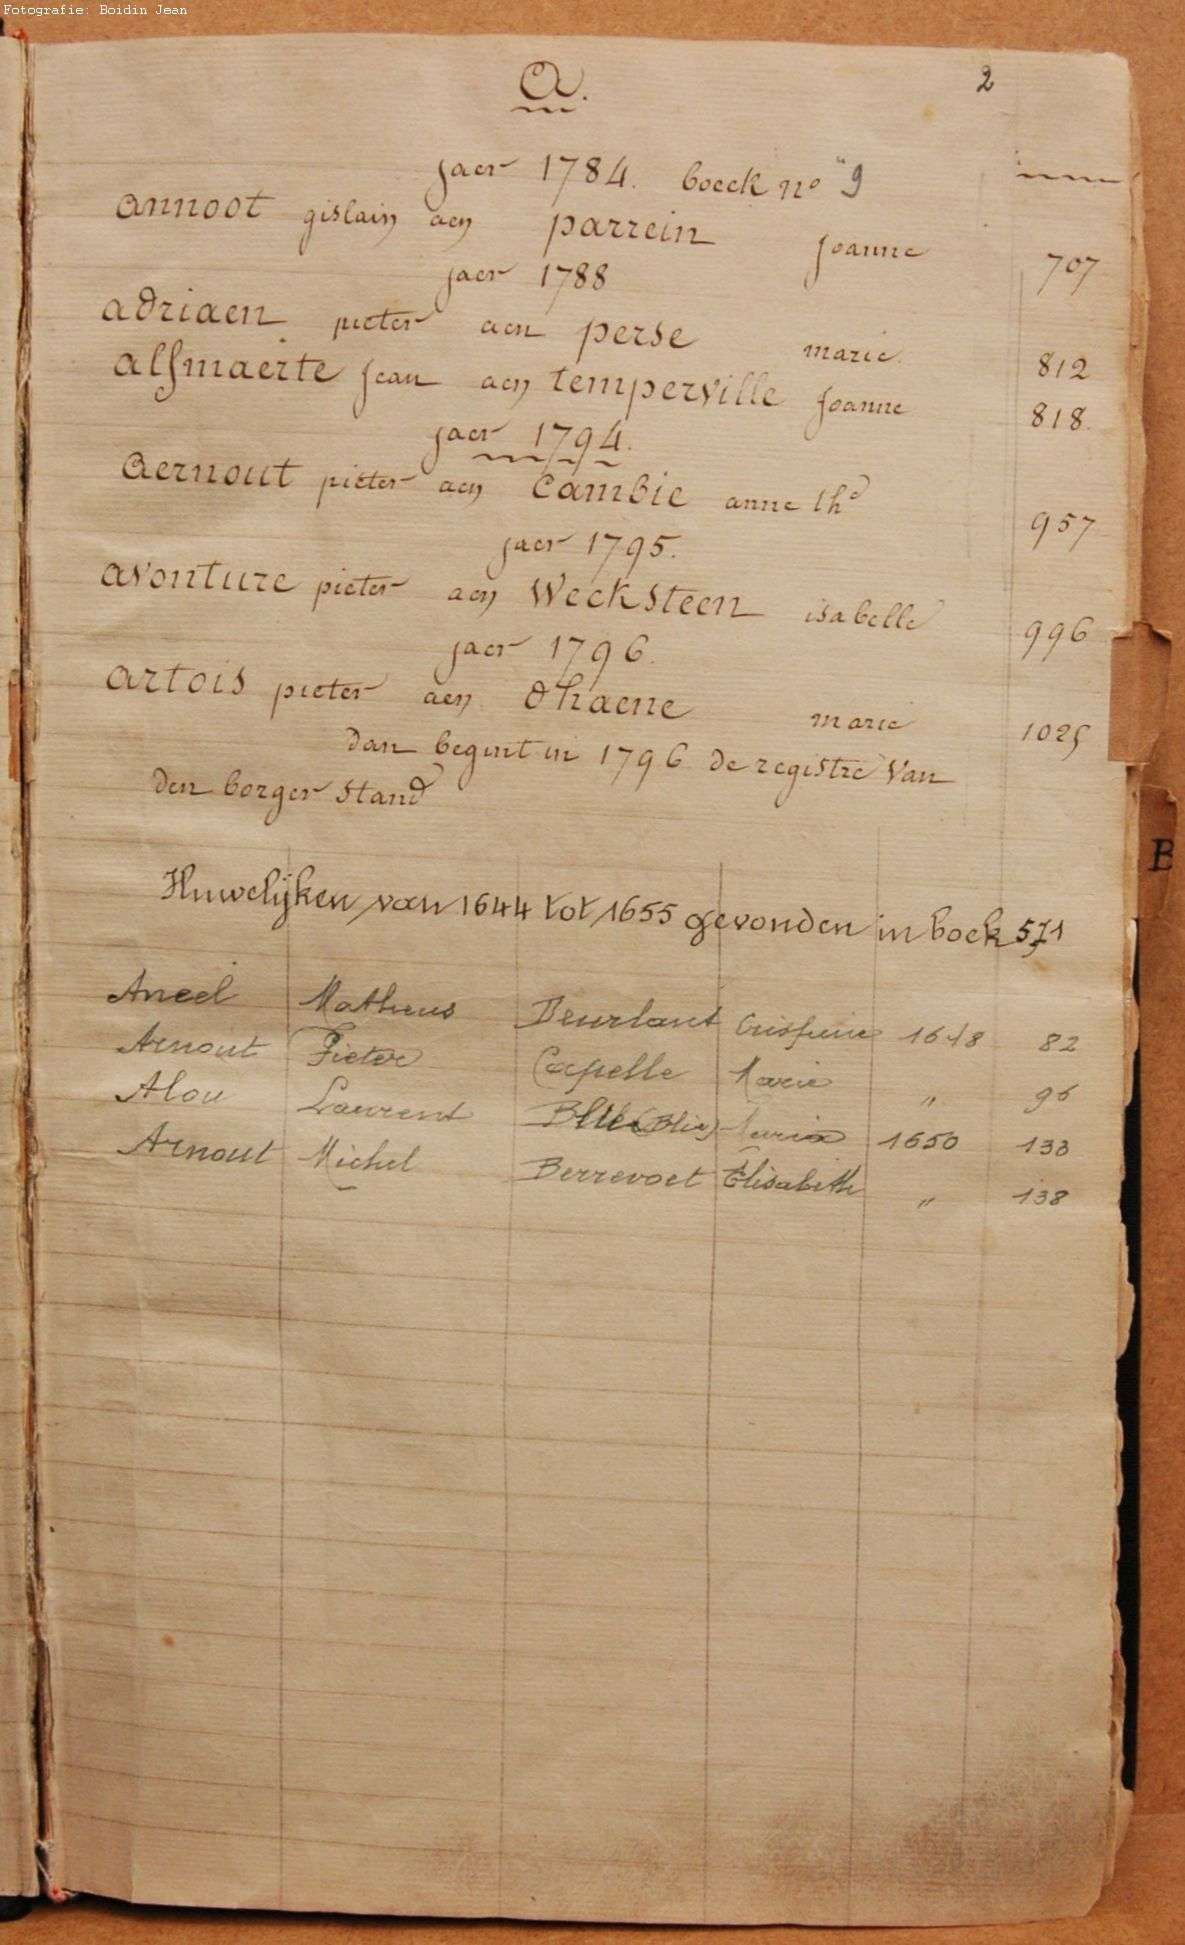 Fotografie: Boidin Jean
a. 2
jaer 1784. boeck no 9
annoot gislain aen parrein joanne 707
jaer 1788
adriaen pieter aen perse marie 812
alsmaerte jean aen temperville joanne 818.
jaer 1794.
aernout pieter aen cambie anne thé 957
jaer 1795.
avonture pieter aen Wecksteen isabelle 996
jaer 1796.
artois pieter aen dhaene marie 1025
dan begint in 1796 de registre van
den borger stand
B
Huwelijken van 1644 tot 1655 gevonden in boek 571
Aneel Matheus Beurlaut 1648 82
Arnout Pieter Capelle Marie " 96
Alou Laurent (Blie) Maria 1650 133
Arnout Michel Berrevoet Elisabeth " 138